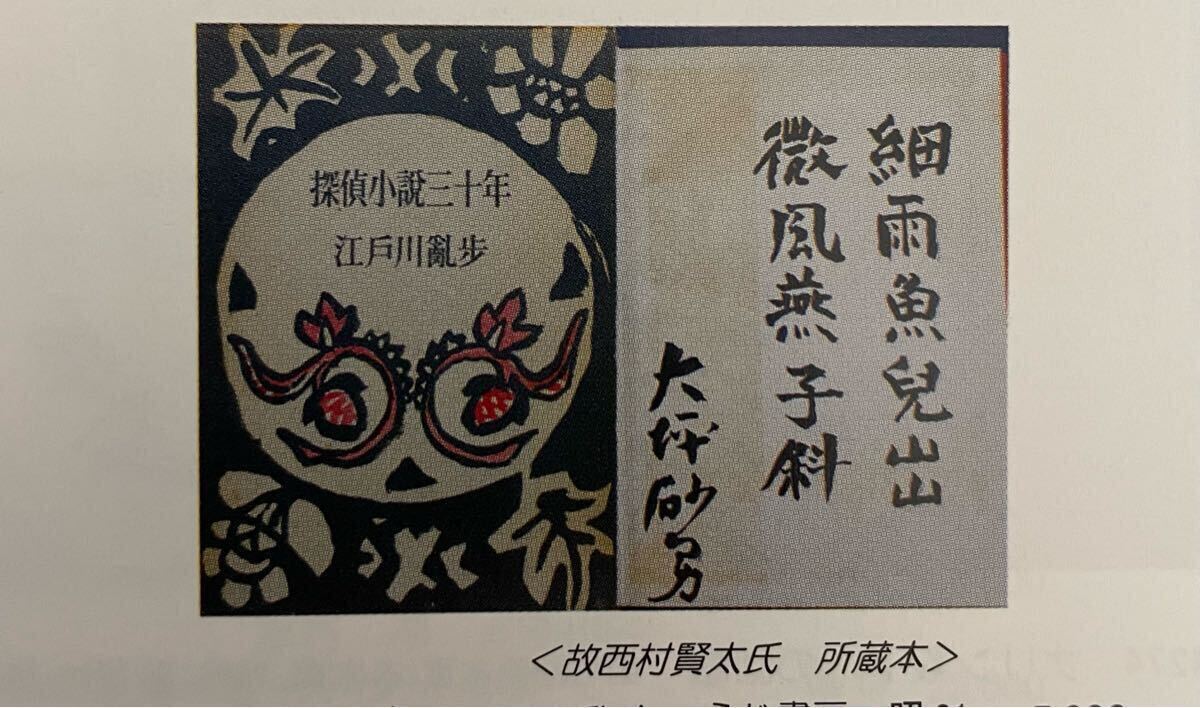 探偵小說三十年
江戶川亂步
細雨魚兒出
微風燕子斜
大坪砂男
＜故西村賢太氏　所蔵本＞